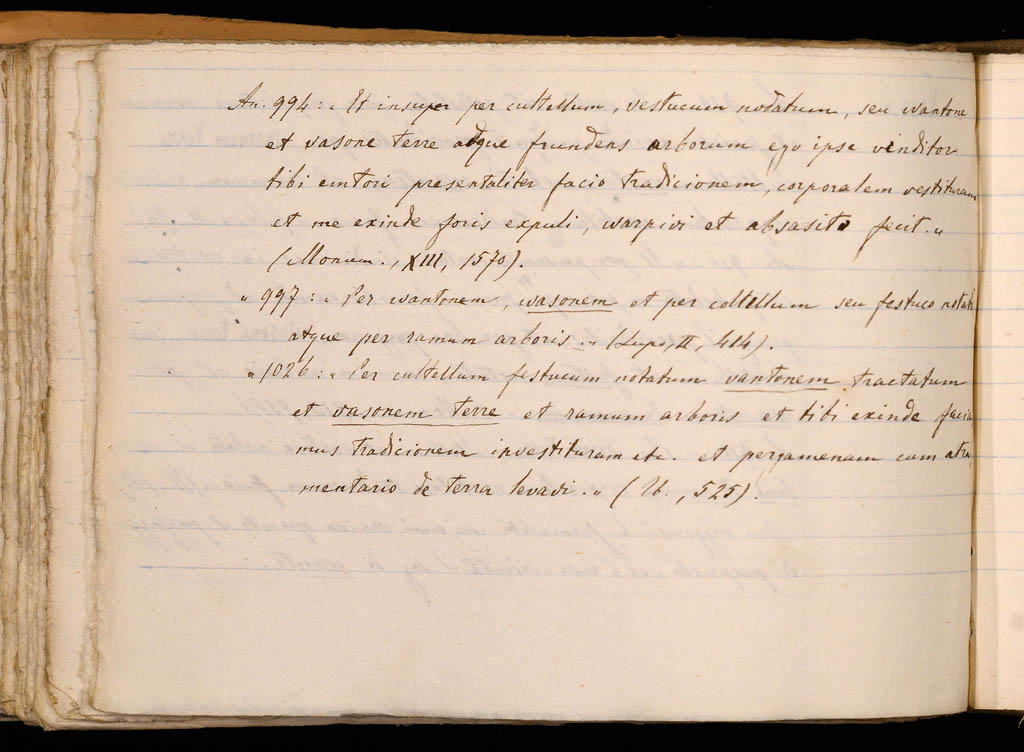 An. 994: „ Et insuper per cultellum, vestucum nodatum, seu wantone
et vasone terre atque frundens arborum ego ipse venditor
tibi emtori presentaliter facio tradicionem, corporalem vestituram
et me exinde foris expuli, warpivi et absasito fecit. „
(Monum., XIII, 1570).
„ 997: „ Per wantonem, wasonem et per coltellum seu festuco notato
atque per ramum arboris. „ (Lupo, II, 414).
„ 1026: „ Per cultellum festucum notatum vantonem tractatum
et vasonem terre et ramum arboris et tibi exinde facia
mus tradicionem investituram etc. et pergamenam cum atra
mentario de terra levavi. „ (Ib., 525).